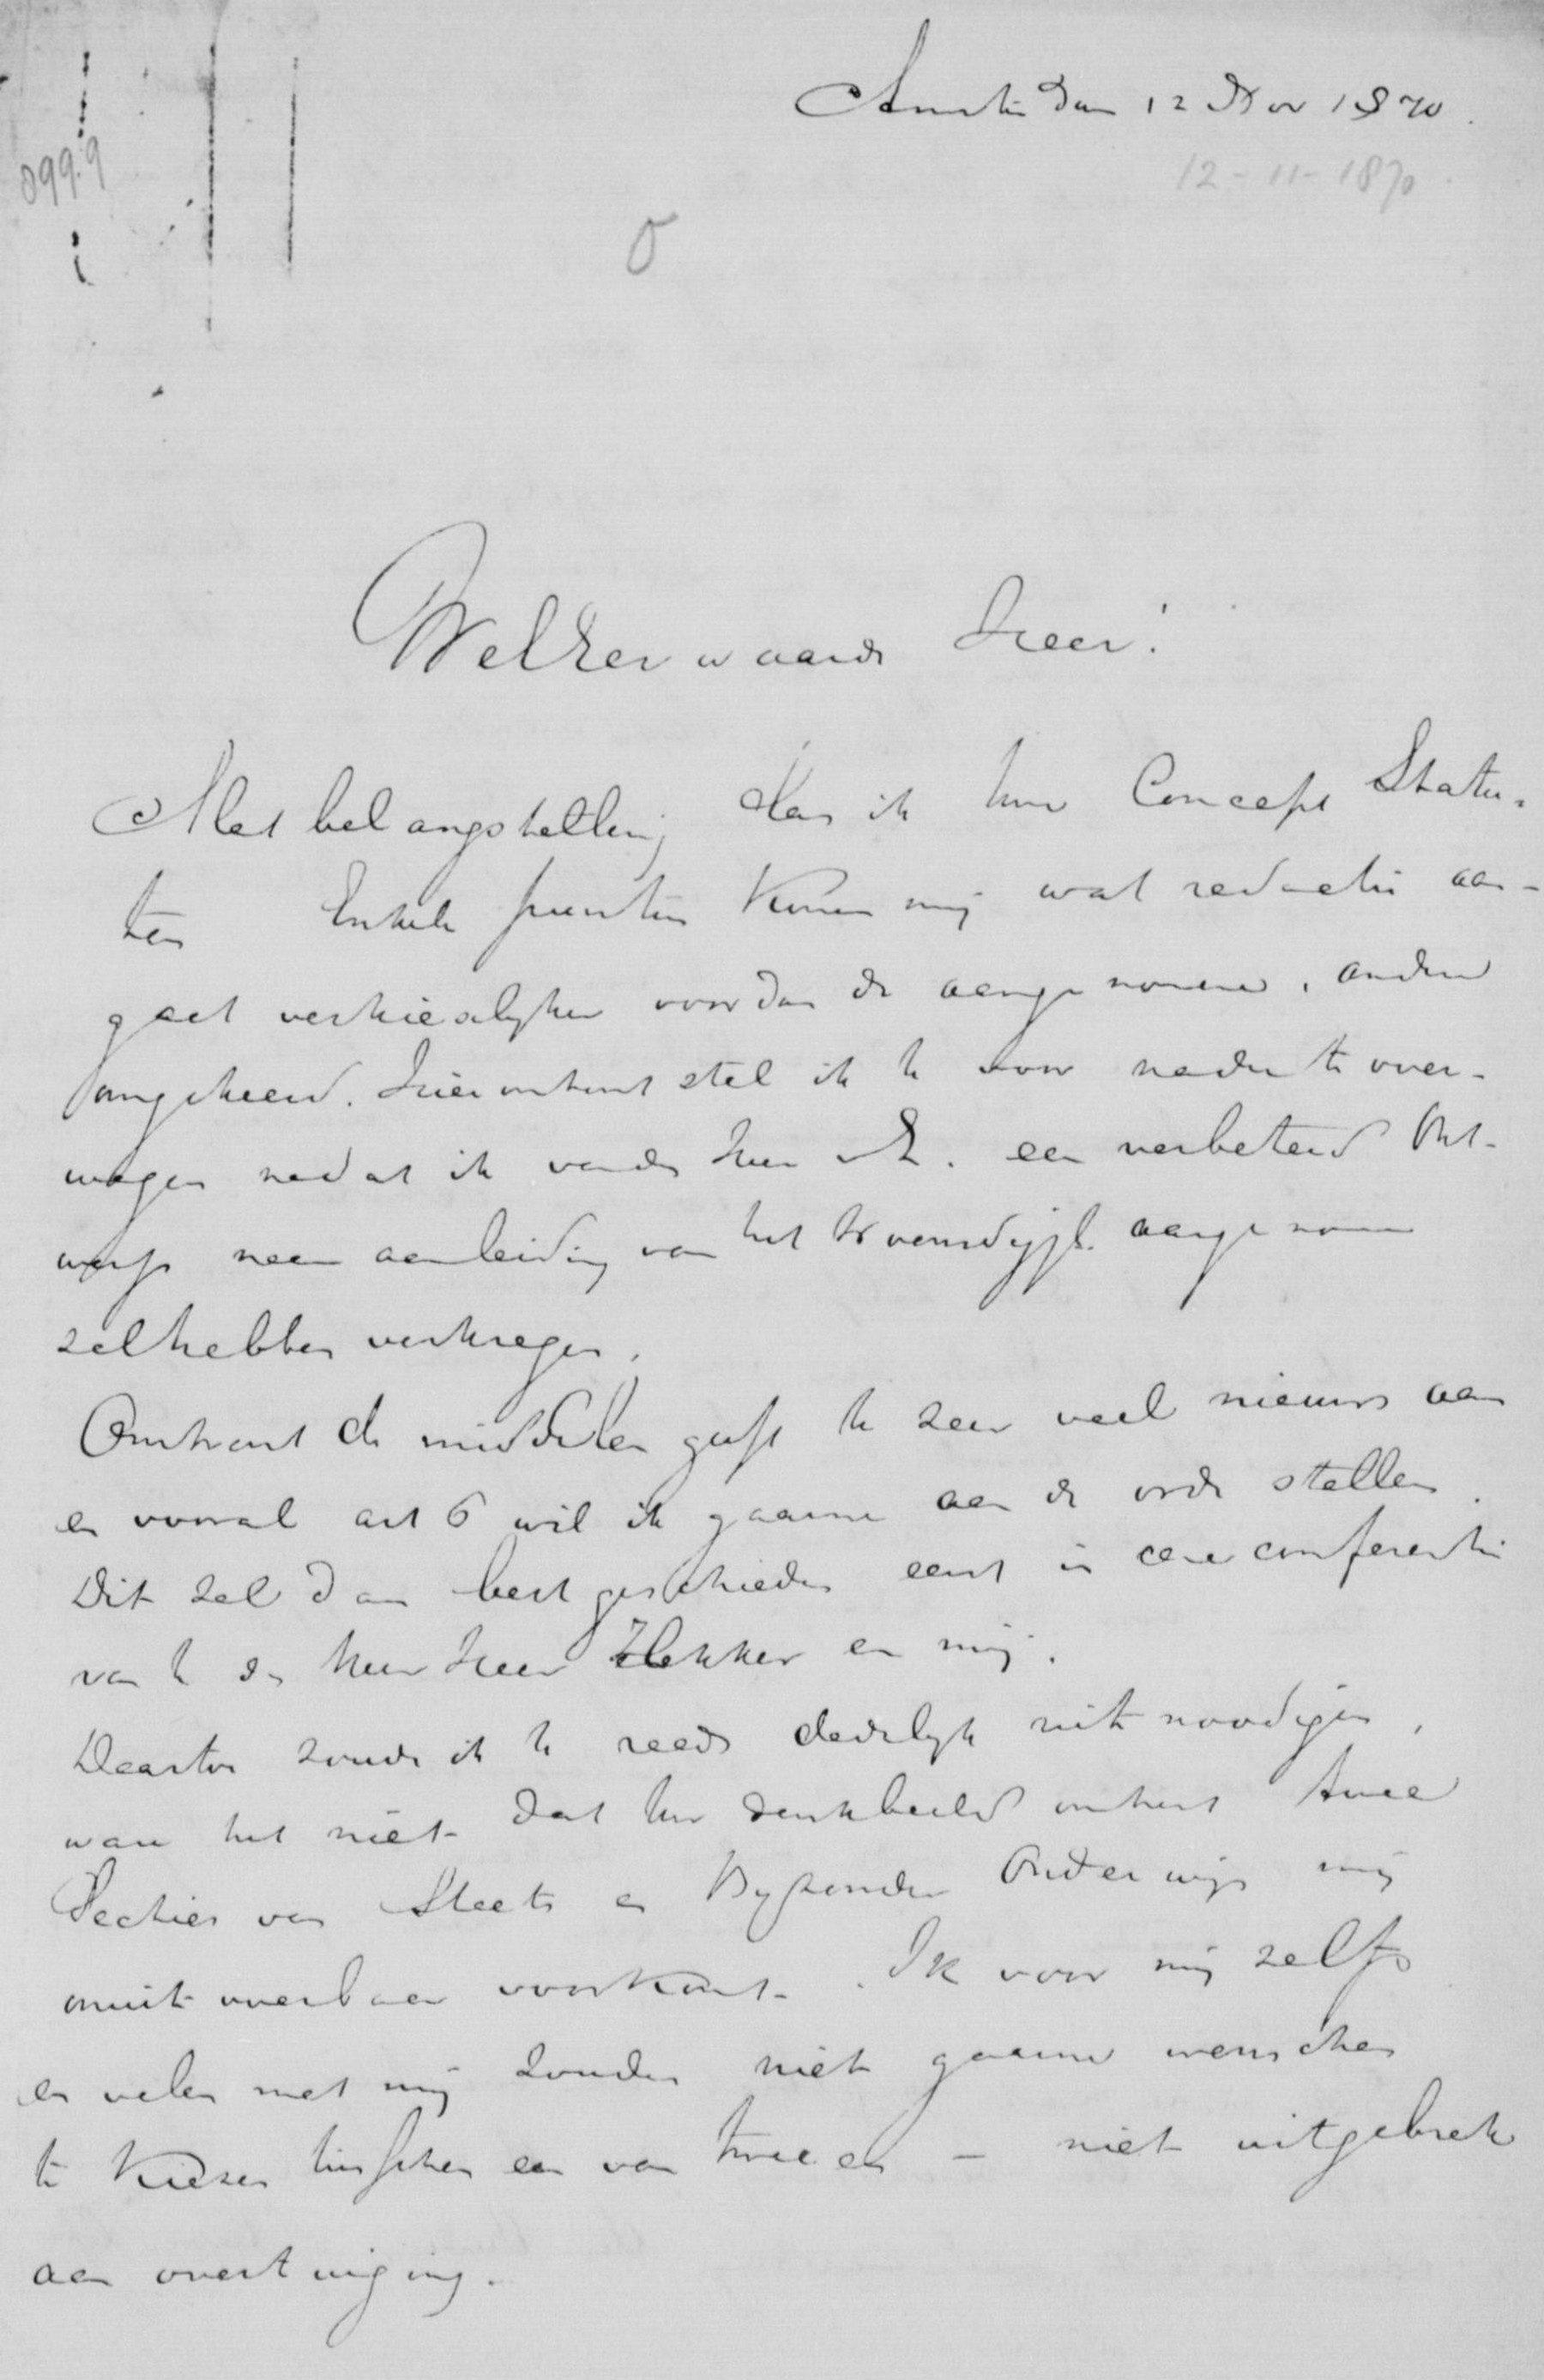 Amsterdam 12 Nov 1870.
12-11-1870
0999
Weleerwaarde Heer!
Met belangstelling las ik Uw Concept Statu-
ten Enkele punten komen mij wat redactie aan-
gaat verkieslijker voor dan de aangenomen, andere
omgekeerd. Hieromtrent stel ik U voor nader te over-
wegen nadat ik van den Heer een verbeterd Ont-
werp naar aanleiding van het aangenomen
zal hebben verkregen.
Omtrent de middelen geeft U zeer veel nieuws aan
en vooral art 6 wil ik gaarne aan de orde stellen.
Dit zal dan best geschieden eerst in eene conferentie
van U den Heer en mij.
Daartoe zoude ik U reeds dadelijk uitnoodigen,
ware het niet dat Uw denkbeeld omtrent twee
Secties van Staats en Byzonder Onderwijs mij
onuitvoerbaar voorkomt. Ik voor mij zelf
en velen met mij zouden niet gaarne wenschen
te kiezen tusschen een van tweeen - niet uit gebrek
aan overtuiging.